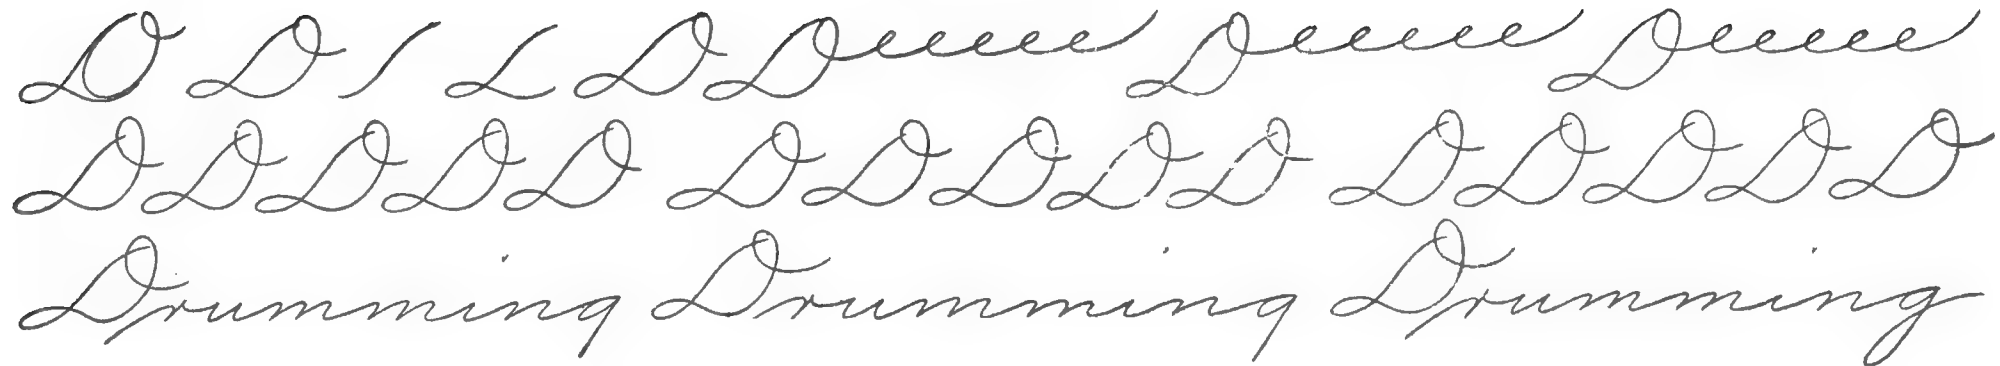 D D / L D Deeeee Deeee Deeee
D D D D D D D D D D D D D D D
Drumming Drumming Drumming